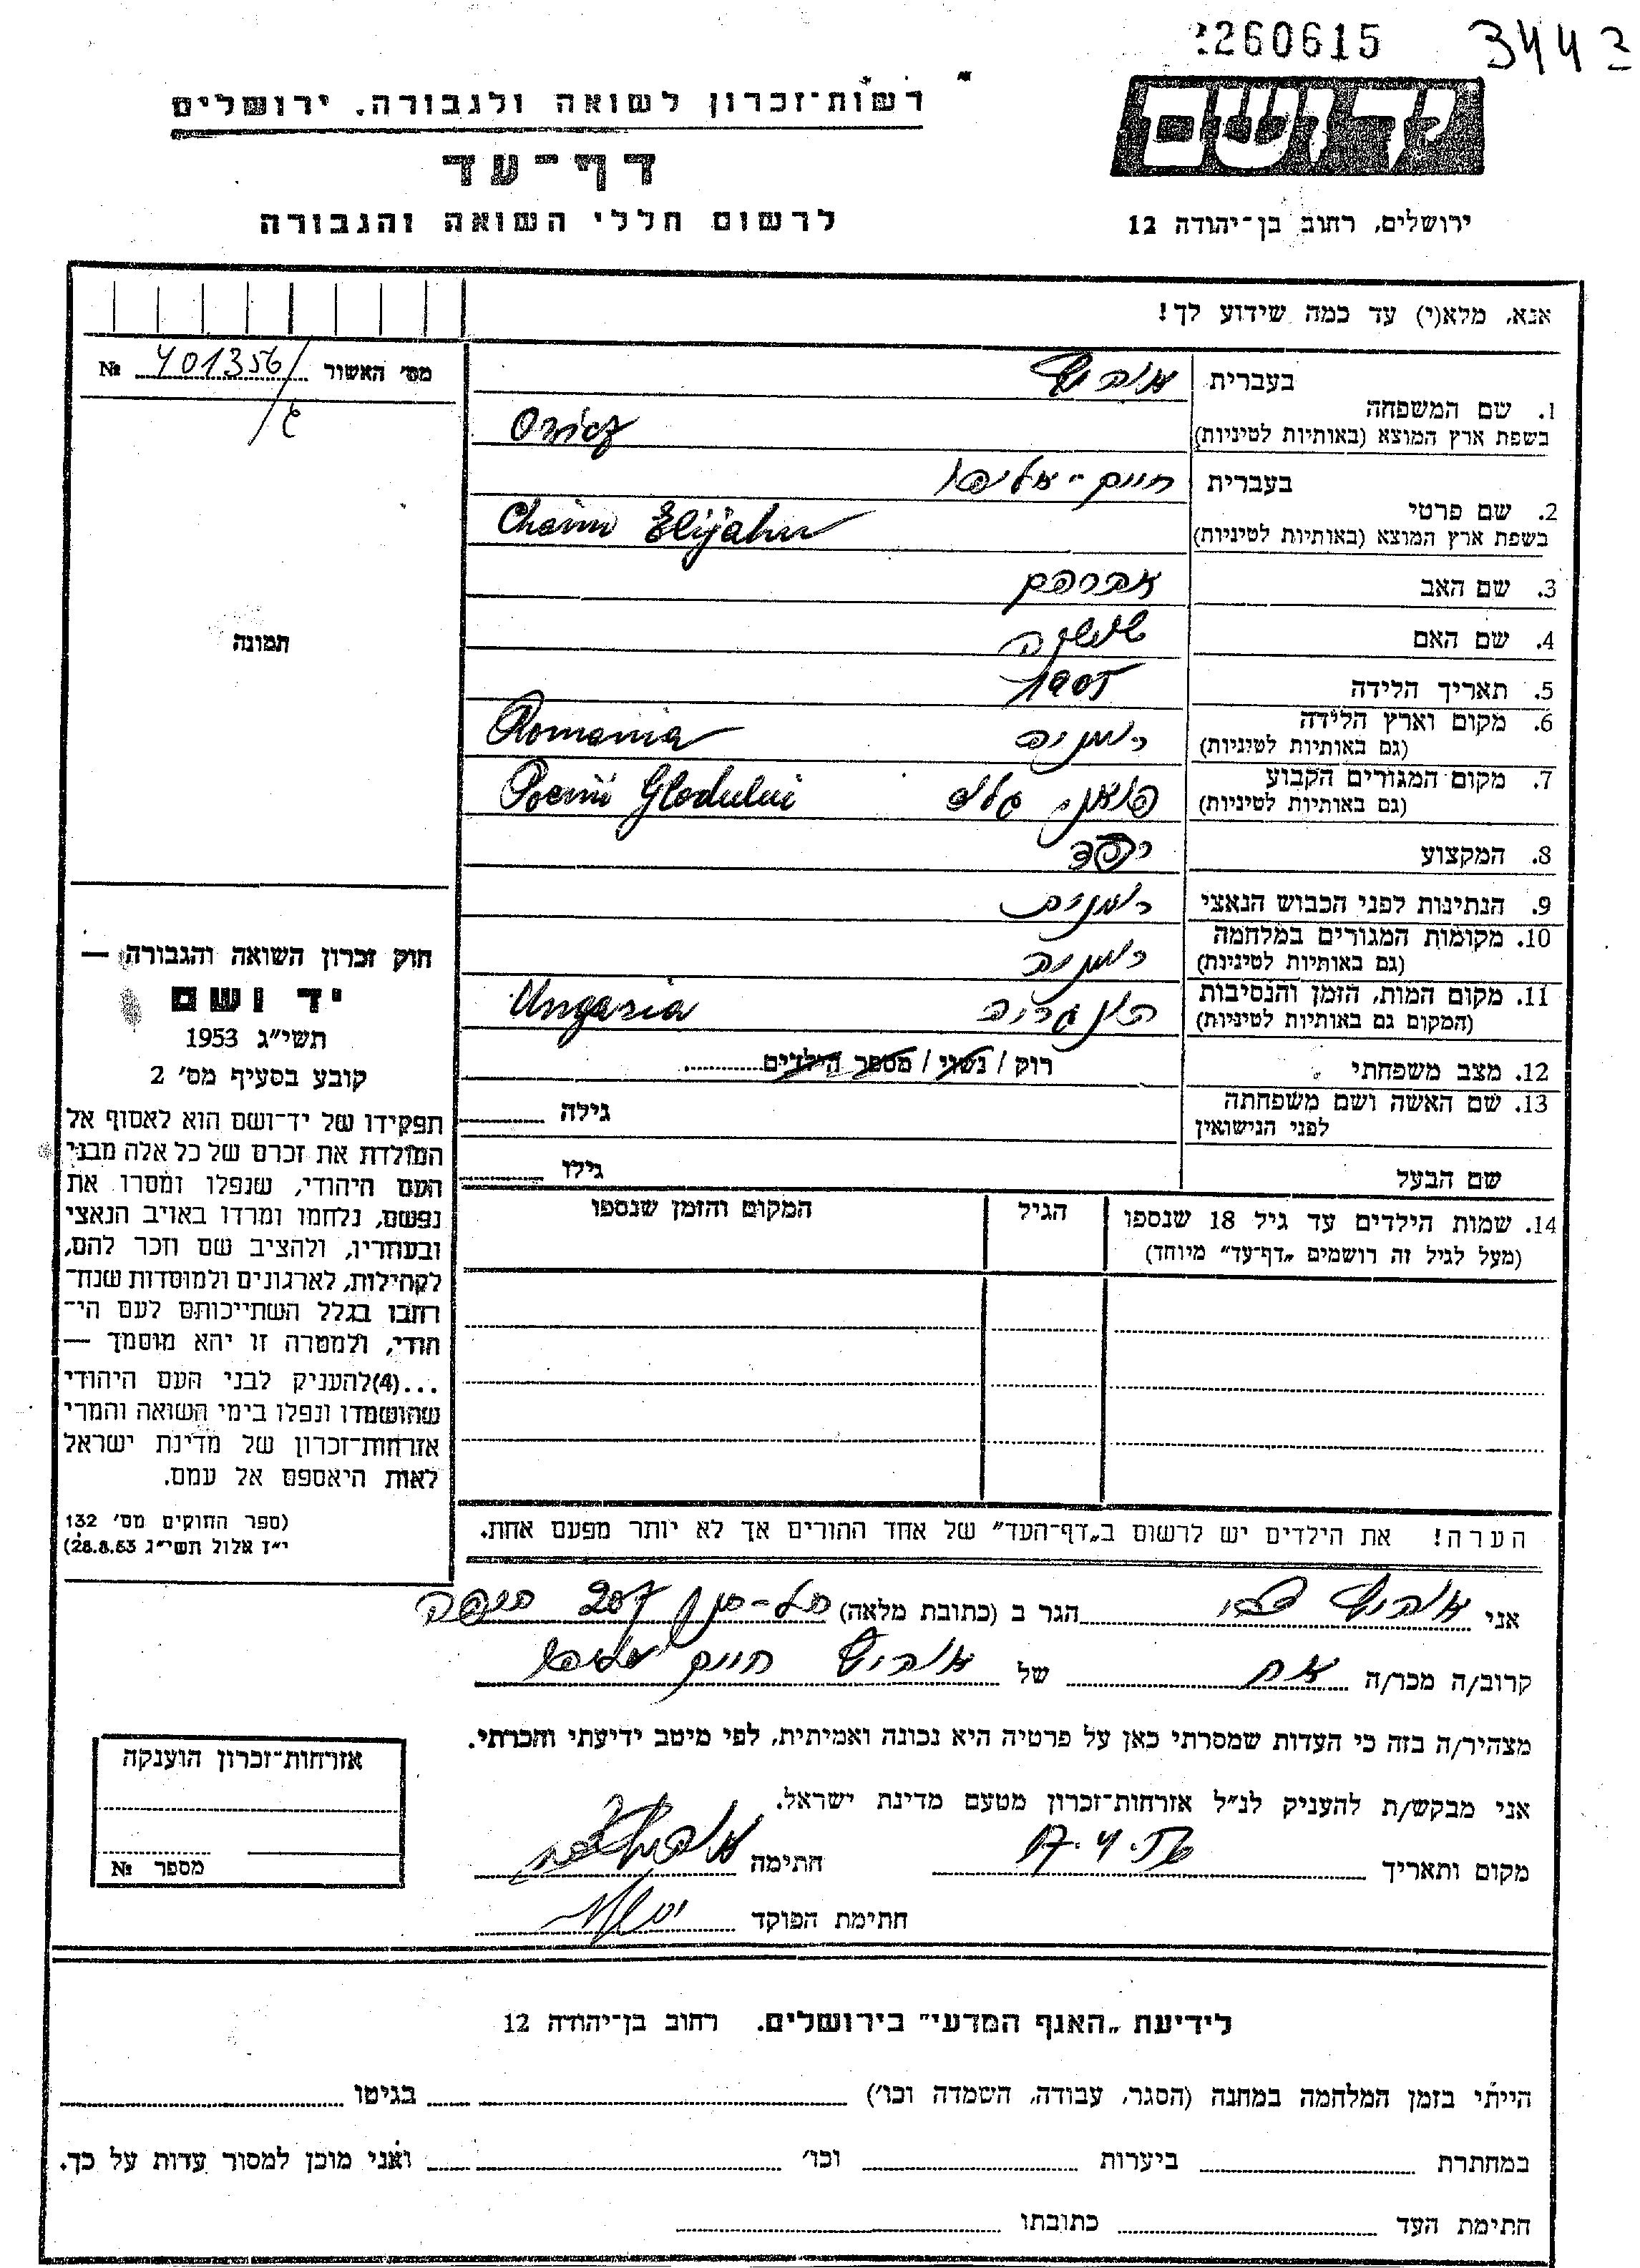 260615 3442
רשות־זכרון לשואה ולגבורה, ירושלים
יד ושם
דף־עד
לרשום חללי השואה והגבורה
ירושלים, רחוב בן־יהודה 12
אנא, מלא(י) עד כמה שידוע לך!
מס׳ האשור 401356 №
1. שם המשפחה
בעברית
בשפת ארץ המוצא (באותיות לטיניות)
2. שם פרטי
בעברית חיים-אליהו
בשפת ארץ המוצא (באותיות לטיניות) Chaim Elijahu
3. שם האב אברהם
4. שם האם
5. תאריך הלידה 1905
6. מקום וארץ הלידה
(גם באותיות לטיניות)
רומניה Romania
7. מקום המגורים הקבוע
(גם באותיות לטיניות)
Glodului
8. המקצוע
9. הנתינות לפני הכבוש הנאצי רומנית
10. מקומות המגורים במלחמה
(גם באותיות לטיניות)
רומניה
11. מקום המות, הזמן והנסיבות
(המקום גם באותיות לטיניות)
הונגריה Ungaria
12. מצב משפחתי רוק / נשוי / מספר הילדים
13. שם האשה ושם משפחתה
לפני הנישואין
גילה
שם הבעל גילו
14. שמות הילדים עד גיל 18 שנספו
(מעל לגיל זה רושמים „דף־עד״ מיוחד)
הגיל
המקום והזמן שנספו
תמונה
חוק זכרון השואה והגבורה —
יד ושם
תשי״ג 1953
קובע בסעיף מס׳ 2
תפקידו של יד־ושם הוא לאסוף אל
המולדת את זכרם של כל אלה מבני
העם היהודי, שנפלו ומסרו את
נפשם, נלחמו ומרדו באויב הנאצי
ובעוזריו, ולהציב שם וזכר להם,
לקהילות, לארגונים ולמוסדות שנח־
רבו בגלל השתייכותם לעם הי־
הודי, ולמטרה זו יהא מוסמך —
...(4)להעניק לבני העם היהודי
שהושמדו ונפלו בימי השואה והמרי
אזרחות־זכרון של מדינת ישראל
לאות היאספם אל עמם.
(ספר החוקים מס׳ 132
י״ז אלול תשי״ג 28.8.53)
הערה! את הילדים יש לרשום ב„דף־העד״ של אחד ההורים אך לא יותר מפעם אחת.
אני הגר ב (כתובת מלאה) 207 חיפה
קרוב/ה מכר/ה אח של חיים אליהו
מצהיר/ה בזה כי העדות שמסרתי כאן על פרטיה היא נכונה ואמיתית, לפי מיטב ידיעתי והכרתי.
אני מבקש/ת להעניק לנ״ל אזרחות־זכרון מטעם מדינת ישראל.
מקום ותאריך 17.4.56 חתימה
חתימת הפוקד
אזרחות־זכרון הוענקה
מספר №
לידיעת „האגף המדעי״ בירושלים, רחוב בן־יהודה 12
הייתי בזמן המלחמה במחנה (הסגר, עבודה, השמדה וכו׳) בגיטו
במחתרת ביערות וכו׳ ואני מוכן למסור עדות על כך.
חתימת העד כתובתו